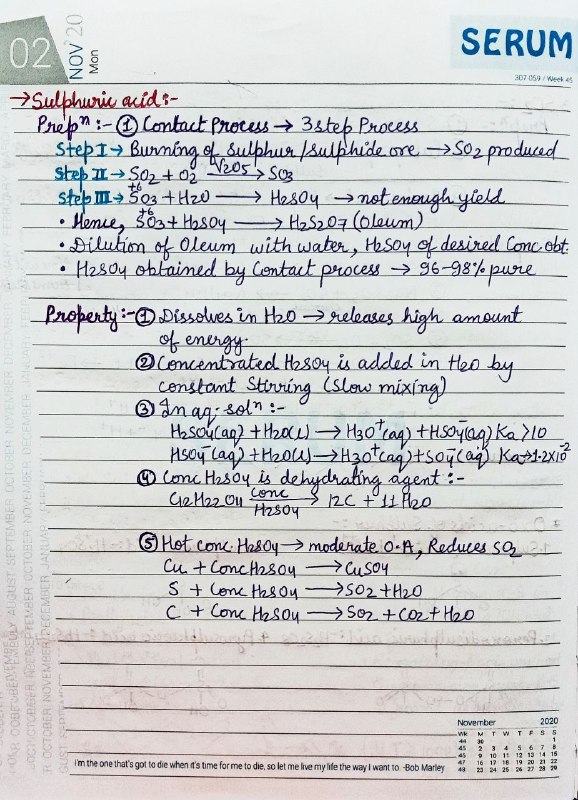 02
NOV '20
Mon
SERUM
307-059 / Week 45
→ Sulphuric acid :-
Prepⁿ :- ① Contact Process → 3 step Process
Step I → Burning of sulphur/sulphide ore → SO2 produced
Step II → SO2 + O2 —V2O5→ SO3
Step III → +6 SO3 + H2O → H2SO4 → not enough yield
• Hence, +6 SO3 + H2SO4 → H2S2O7 (Oleum)
• Dilution of Oleum with water, H2SO4 of desired Conc. obt.
• H2SO4 obtained by Contact process → 96-98% pure
Property :- ① Dissolves in H2O → releases high amount
of energy.
② Concentrated H2SO4 is added in H2O by
constant Stirring (Slow mixing)
③ In aq. solⁿ :-
H2SO4(aq) + H2O(l) → H3O⁺(aq) + HSO4⁻(aq) Ka >10
HSO4⁻(aq) + H2O(l) → H3O⁺(aq) + SO4⁻(aq) Ka → 1.2×10⁻²
④ Conc H2SO4 is dehydrating agent :-
C12H22O11 —conc H2SO4→ 12C + 11H2O
⑤ Hot conc. H2SO4 → moderate O.A, Reduces SO2
Cu + Conc H2SO4 → CuSO4
S + Conc H2SO4 → SO2 + H2O
C + Conc H2SO4 → SO2 + CO2 + H2O
November 2020
Wk M T W T F S S
44 30 1
45 2 3 4 5 6 7 8
46 9 10 11 12 13 14 15
47 16 17 18 19 20 21 22
48 23 24 25 26 27 28 29
I'm the one that's got to die when it's time for me to die, so let me live my life the way I want to. -Bob Marley